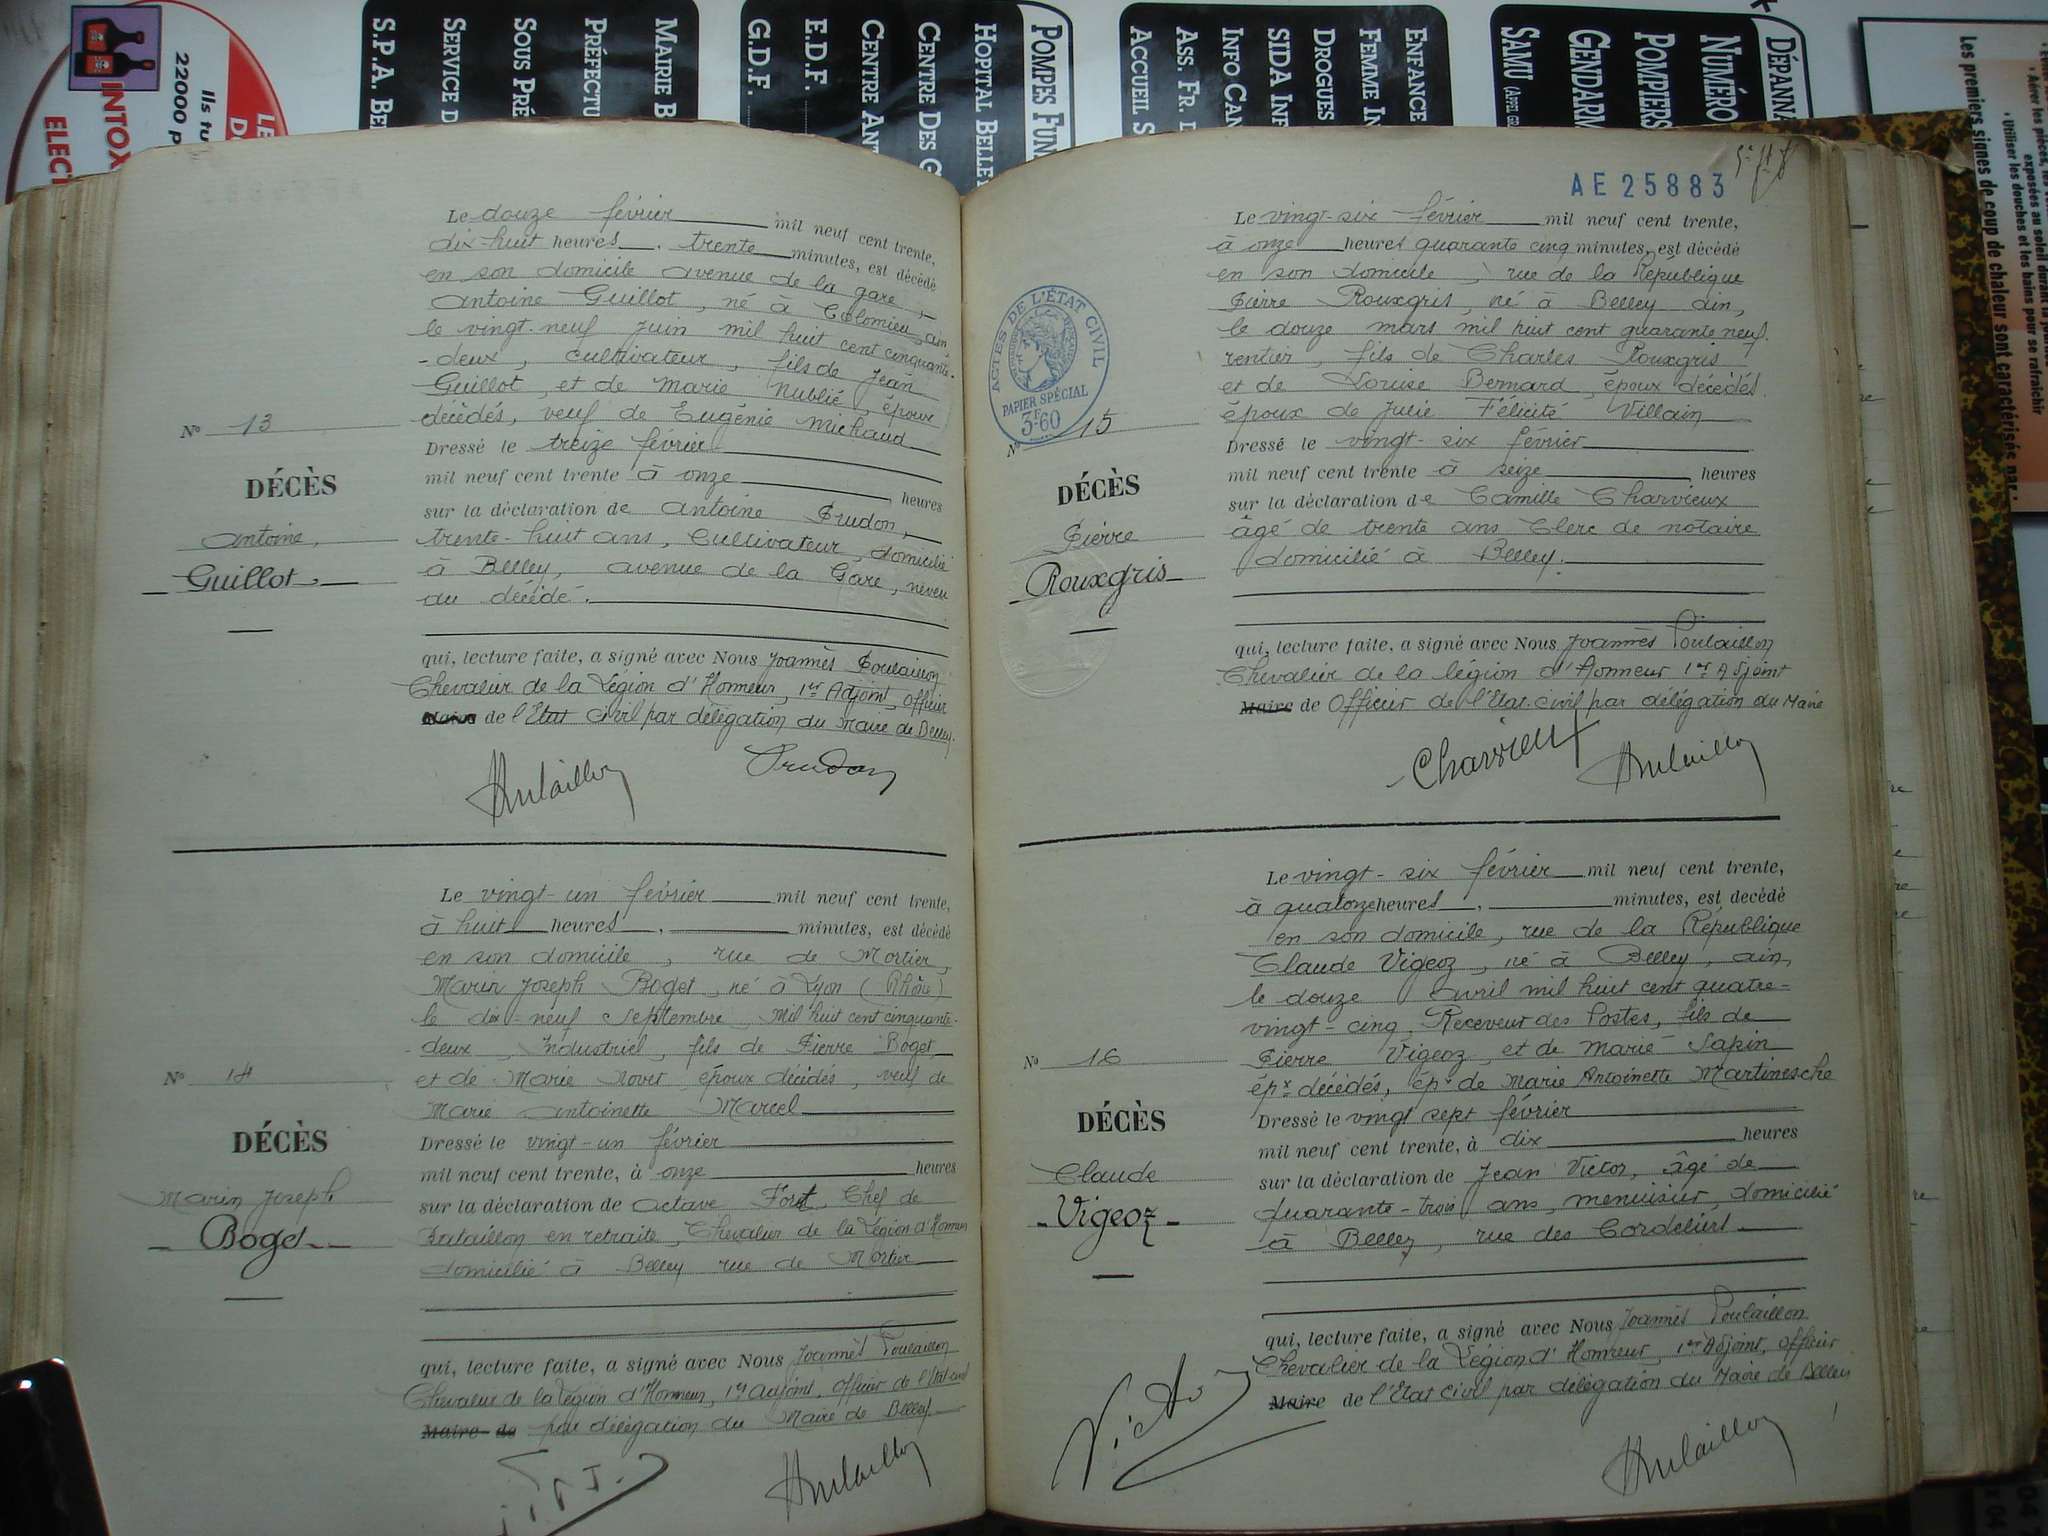 INTOX
ELECT
Ils tu
22000 p
S.P.A. BE
SERVICE D
SOUS PRÉ
PRÉFECTU
MAIRIE B
G.D.F.
E.D.F.
CENTRE ANT
CENTRE DES G
HOPITAL BELLE
POMPES FUN
ACCUEIL S
ASS. FR. D
INFO CAN
SIDA INF
DROGUES
FEMME IN
ENFANCE
SAMU (APPEL GR
GENDARM
POMPIERS
NUMÉRO
DÉPANNA
Les premiers signes de coup de chaleur sont caractérisés par :
• Utiliser les douches et les bains pour se rafraîchir
Le douze février mil neuf cent trente,
dix-huit heures, trente minutes, est décédé
en son domicile avenue de la gare,
Antoine Guillot, né à Colomieu, ain
le vingt-neuf Juin mil huit cent cinquante-
-deux, cultivateur, fils de Jean
Guillot, et de Marie Nublié, époux
décédés, veuf de Eugénie Michaud
N° 13
DÉCÈS
Antoine,
Guillot
Dressé le treize février
mil neuf cent trente à onze heures
sur la déclaration de Antoine Prudon,
trente-huit ans, Cultivateur, domicilié
à Belley, avenue de la Gare, neveu
du décédé.
qui, lecture faite, a signé avec Nous Joannès Poulaillon
Chevalier de la Légion d'Honneur, 1er Adjoint, officier
Maire de l'Etat civil par délégation du Maire de Belley.
Poulaillon Prudon
Le vingt-un février mil neuf cent trente,
à huit heures, minutes, est décédé
en son domicile, rue de Mortier,
Marin Joseph Boget, né à Lyon (Rhône)
le dix-neuf Septembre Mil huit cent cinquante-
-deux, Industriel, fils de Pierre Boget
et de Marie Rover époux décédés, veuf de
Marie Antoinette Marcel
N° 14
DÉCÈS
Marin Joseph
Boget
Dressé le vingt-un février
mil neuf cent trente, à onze heures
sur la déclaration de Octave Foret, Chef de
Bataillon en retraite, Chevalier de la Légion d'Honneur
domicilié à Belley rue de Mortier
qui, lecture faite, a signé avec Nous Joannès Poulaillon
Chevalier de la Légion d'Honneur, 1er adjoint, officier de l'Etat-civil
Maire de par délégation du Maire de Belley
Poulaillon
AE25883
Le vingt-six février mil neuf cent trente,
à onze heures quarante cinq minutes, est décédé
en son domicile, rue de la République
Pierre Rouxgris, né à Belley ain,
le douze mars mil huit cent quarante neuf.
rentier, fils de Charles Rouxgris
et de Louise Bernard, époux décédés
époux de Julie Félicité Villain
ACTES DE L'ÉTAT CIVIL
PAPIER SPÉCIAL
3F60
N° 15
DÉCÈS
Pierre
Rouxgris
Dressé le vingt-six février
mil neuf cent trente à seize heures
sur la déclaration de Camille Charvieux
âgé de trente ans Clerc de notaire
domicilié à Belley.
qui, lecture faite, a signé avec Nous Joannès Poulaillon
Chevalier de la légion d'Honneur 1er Adjoint
Maire de Officier de l'Etat-civil par délégation du Maire
Charvieux Poulaillon
Le vingt-six février mil neuf cent trente,
à quatorze heures, minutes, est décédé
en son domicile, rue de la République
Claude Vigeoz, né à Belley, ain,
le douze avril mil huit cent quatre-
vingt-cinq, Receveur des Postes, fils de
Pierre Vigeoz, et de Marie Sapin
épx décédés, épx de Marie Antoinette Martinesche
N° 16
DÉCÈS
Claude
Vigeoz
Dressé le vingt sept février
mil neuf cent trente, à dix heures
sur la déclaration de Jean Victor, âgé de
quarante-trois ans, menuisier, domicilié
à Belley, rue des Cordeliers
qui, lecture faite, a signé avec Nous Joannès Poulaillon
Chevalier de la Légion d'Honneur, 1er Adjoint, officier
Maire de l'Etat Civil par délégation du Maire de Belley
Victor Poulaillon